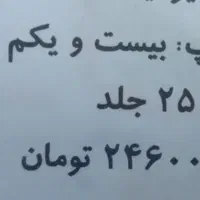 پ: بیست و یکم
۲۵ جلد
۲۴۶۰۰ تومان